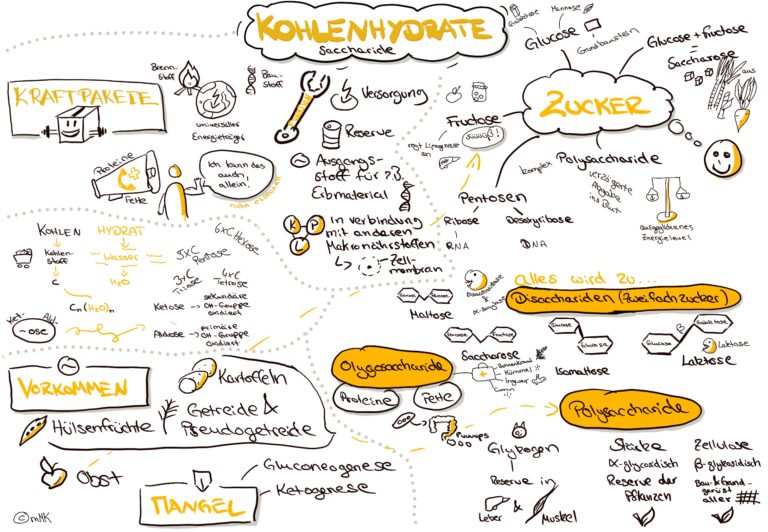 KOHLENHYDRATE
Saccharide
KRAFTPAKETE
Brenn-
stoff
universeller
Energieträger
Bau-
stoff
Proteine
Fette
Ich kann das
auch,
allein.
Versorgung
Reserve
Ausgangs-
stoff für z.B.
In Verbindung
mit anderen
Makronährstoffen
Zell-
membran
K
P
L
ZUCKER
Mannose
Glucose
Grundbaustein
Glucose + Fructose
Saccharose
aus
Fructose
regt Lipogenese
an
komplex
Polysaccharide
verzögerte
Abgabe
ins Blut
Ausgeglichenes
Energielevel
Pentosen
Ribose
RNA
Desoxyribose
DNA
KOHLEN
HYDRAT
Kohlen-
stoff
Wasser
C
H₂O
Cn(H₂O)n
-ose
Ket-
Ald-
3xC
Triose
4xC
Tetrose
5xC
Pentose
6xC Hexose
Ketose
sekundäre
OH-Gruppe
oxidiert
Aldose
primäre
OH-Gruppe
oxidiert
alles wird zu...
Disacchariden (Zweifachzucker)
Glucose
Glucose
Maltose
Glucose
Fructose
Saccharose
Glucose
Glucose
Isomaltose
Glucose
Galaktose
Laktase
Laktose
Olygosaccharide
Proteine
Fette
Kümmel
Ingwer
Puuups
VORKOMMEN
Kartoffeln
Getreide &
Pseudogetreide
Hülsenfrüchte
Obst
MANGEL
Gluconeogenese
Ketogenese
Polysaccharide
Glykogen
Reserve in
Leber
Muskel
Stärke
α-glycosidisch
Reserve der
Pflanzen
Zellulose
β-glykosidisch
Bau- & Grund-
gerüst
aller
© mHK